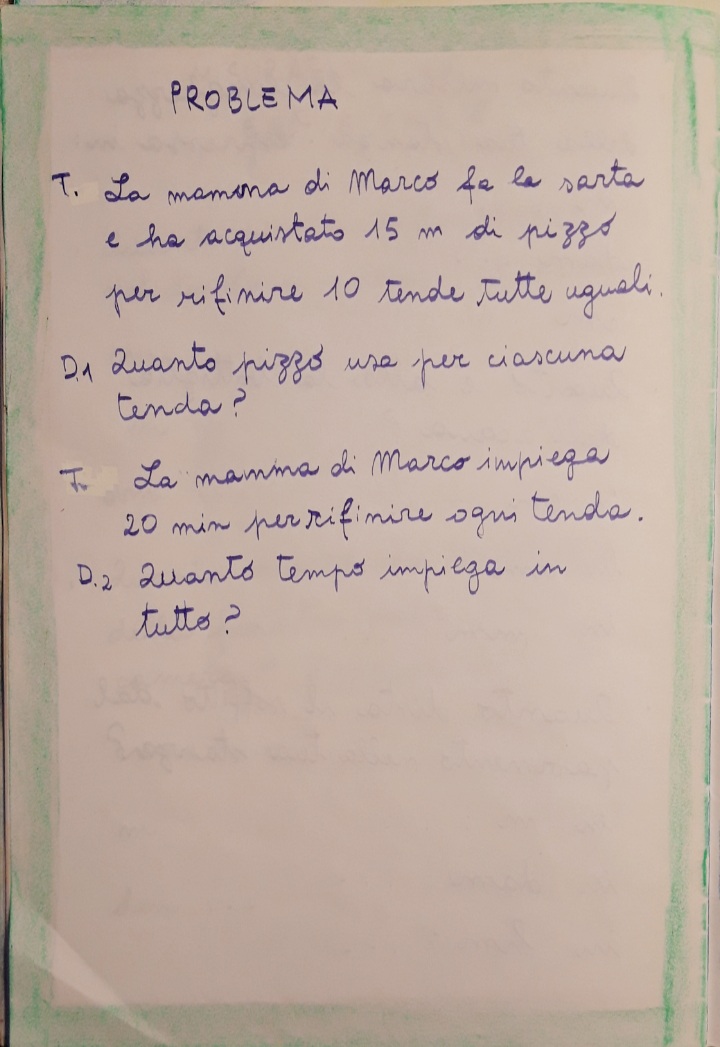 PROBLEMA
T. La mamma di Marco fa la sarta
e ha acquistato 15 m di pizzo
per rifinire 10 tende tutte uguali.
D.1 Quanto pizzo usa per ciascuna
tenda?
T. La mamma di Marco impiega
20 min per rifinire ogni tenda.
D.2 Quanto tempo impiega in
tutto?